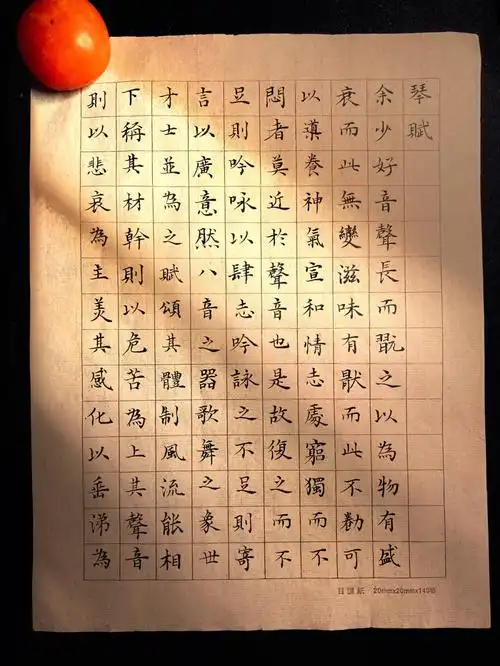 琴賦
余少好音聲長而翫之以為物有盛
衰而此無變滋味有猒而此不勌可
以導養神氣宣和情志處窮獨而不
悶者莫近於聲音也是故復之而不
足則吟咏以肆志吟詠之不足則寄
言以廣意然八音之器歌舞之象世
才士並為之賦頌其體制風流能相
下稱其材幹則以危苦為上其聲音
則以悲哀為主美其感化以垂涕為
日課紙 20mmx20mmx140格